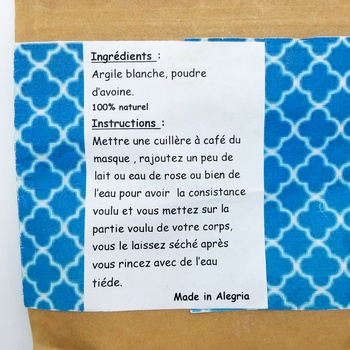 Ingrédients :
Argile blanche, poudre
d'avoine.
100% naturel
Instructions :
Mettre une cuillère à café du
masque , rajoutez un peu de
lait ou eau de rose ou bien de
l'eau pour avoir la consistance
voulu et vous mettez sur la
partie voulu de votre corps,
vous le laissez séché après
vous rincez avec de l'eau
tiéde.
Made in Alegria